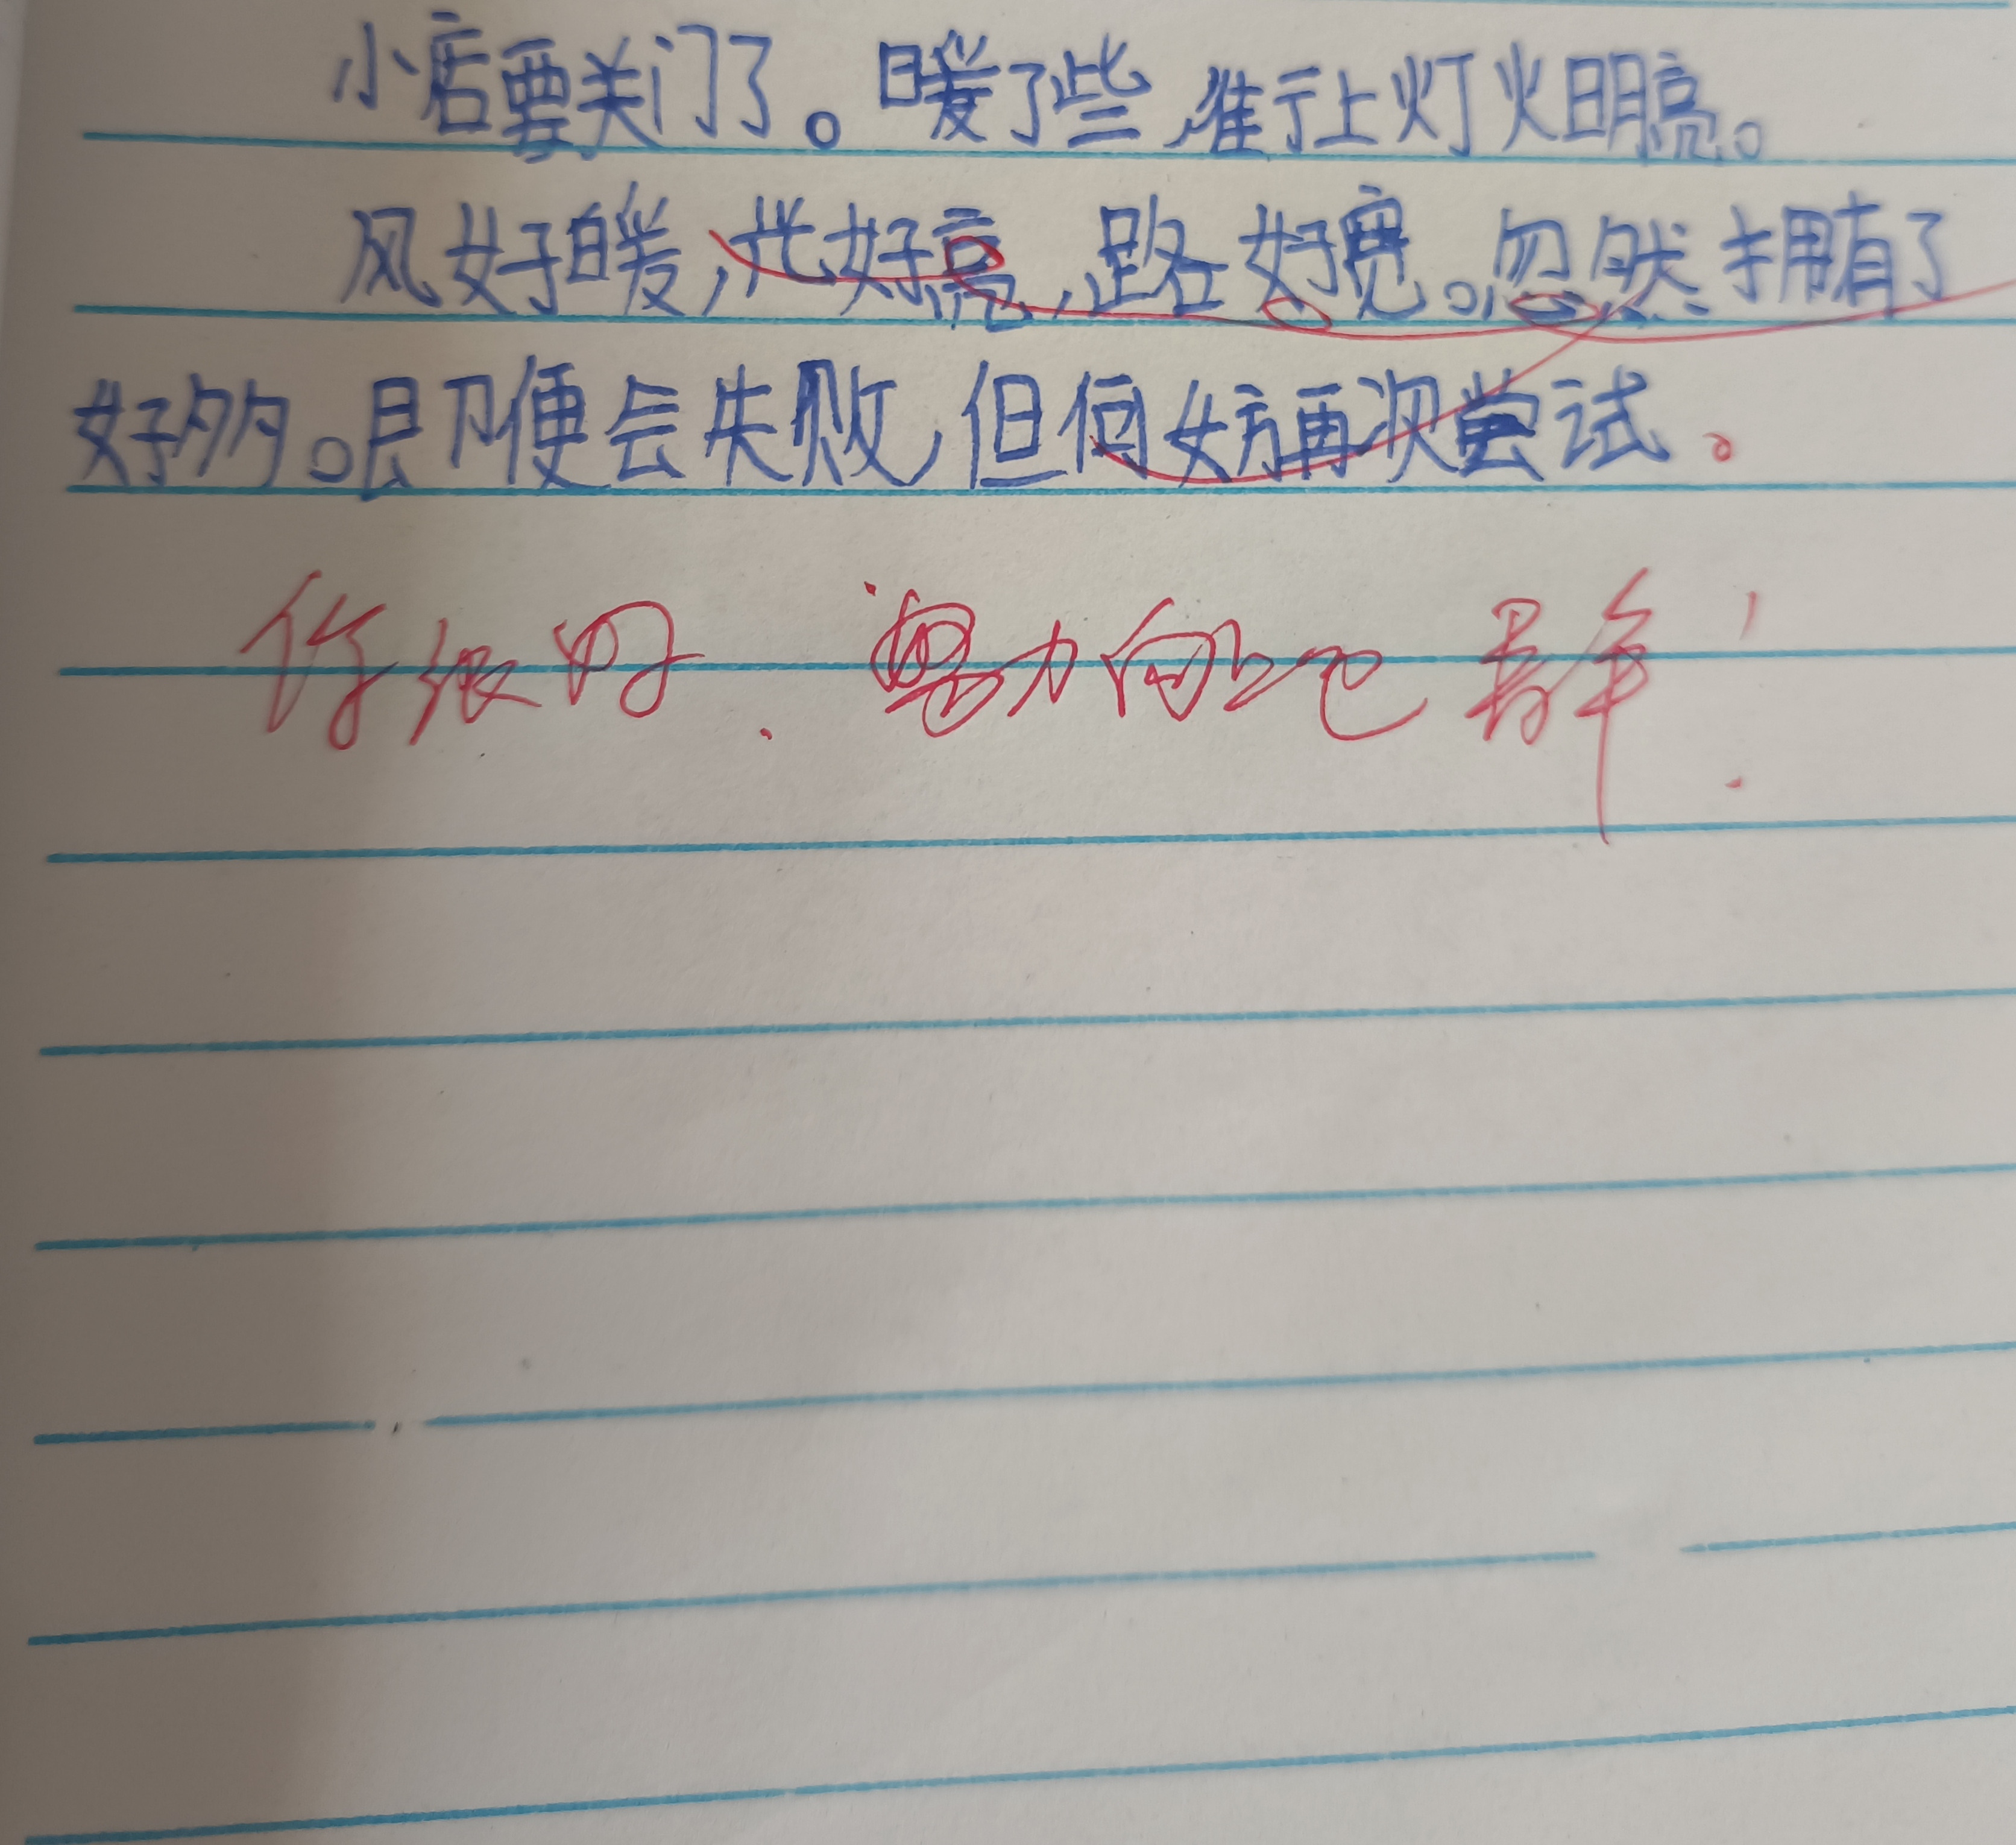 小店要关门了。暖了些,难于让灯火明亮。
风好暖,光好亮,路好宽。忽然拥有了
好多。即便会失败,但何妨再次尝试。
你很好. 努力向上吧